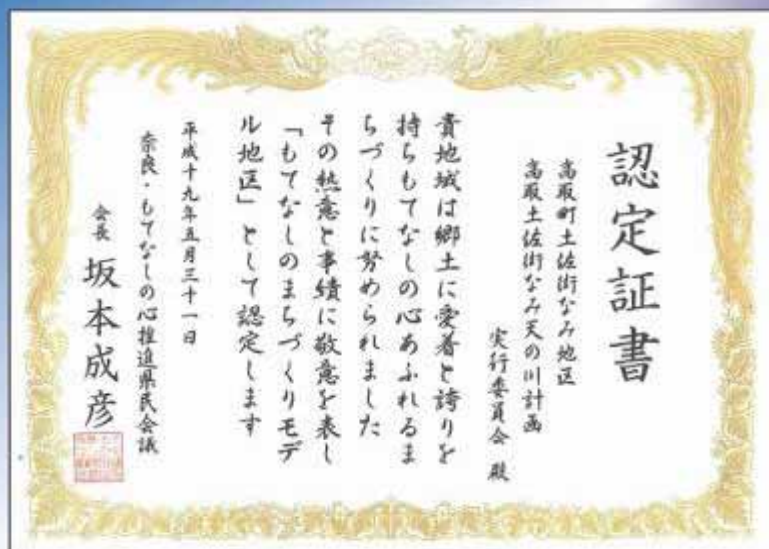 認定証書
高取町土佐街なみ地区
高取土佐街なみ天の川計画
実行委員会 殿
貴地域は郷土に愛着と誇りを
持ちもてなしの心あふれるま
ちづくりに努められました
その熱意と事績に敬意を表し
「もてなしのまちづくりモデ
ル地区」として認定します
平成十九年五月三十一日
奈良・もてなしの心推進県民会議
会長 坂本成彦